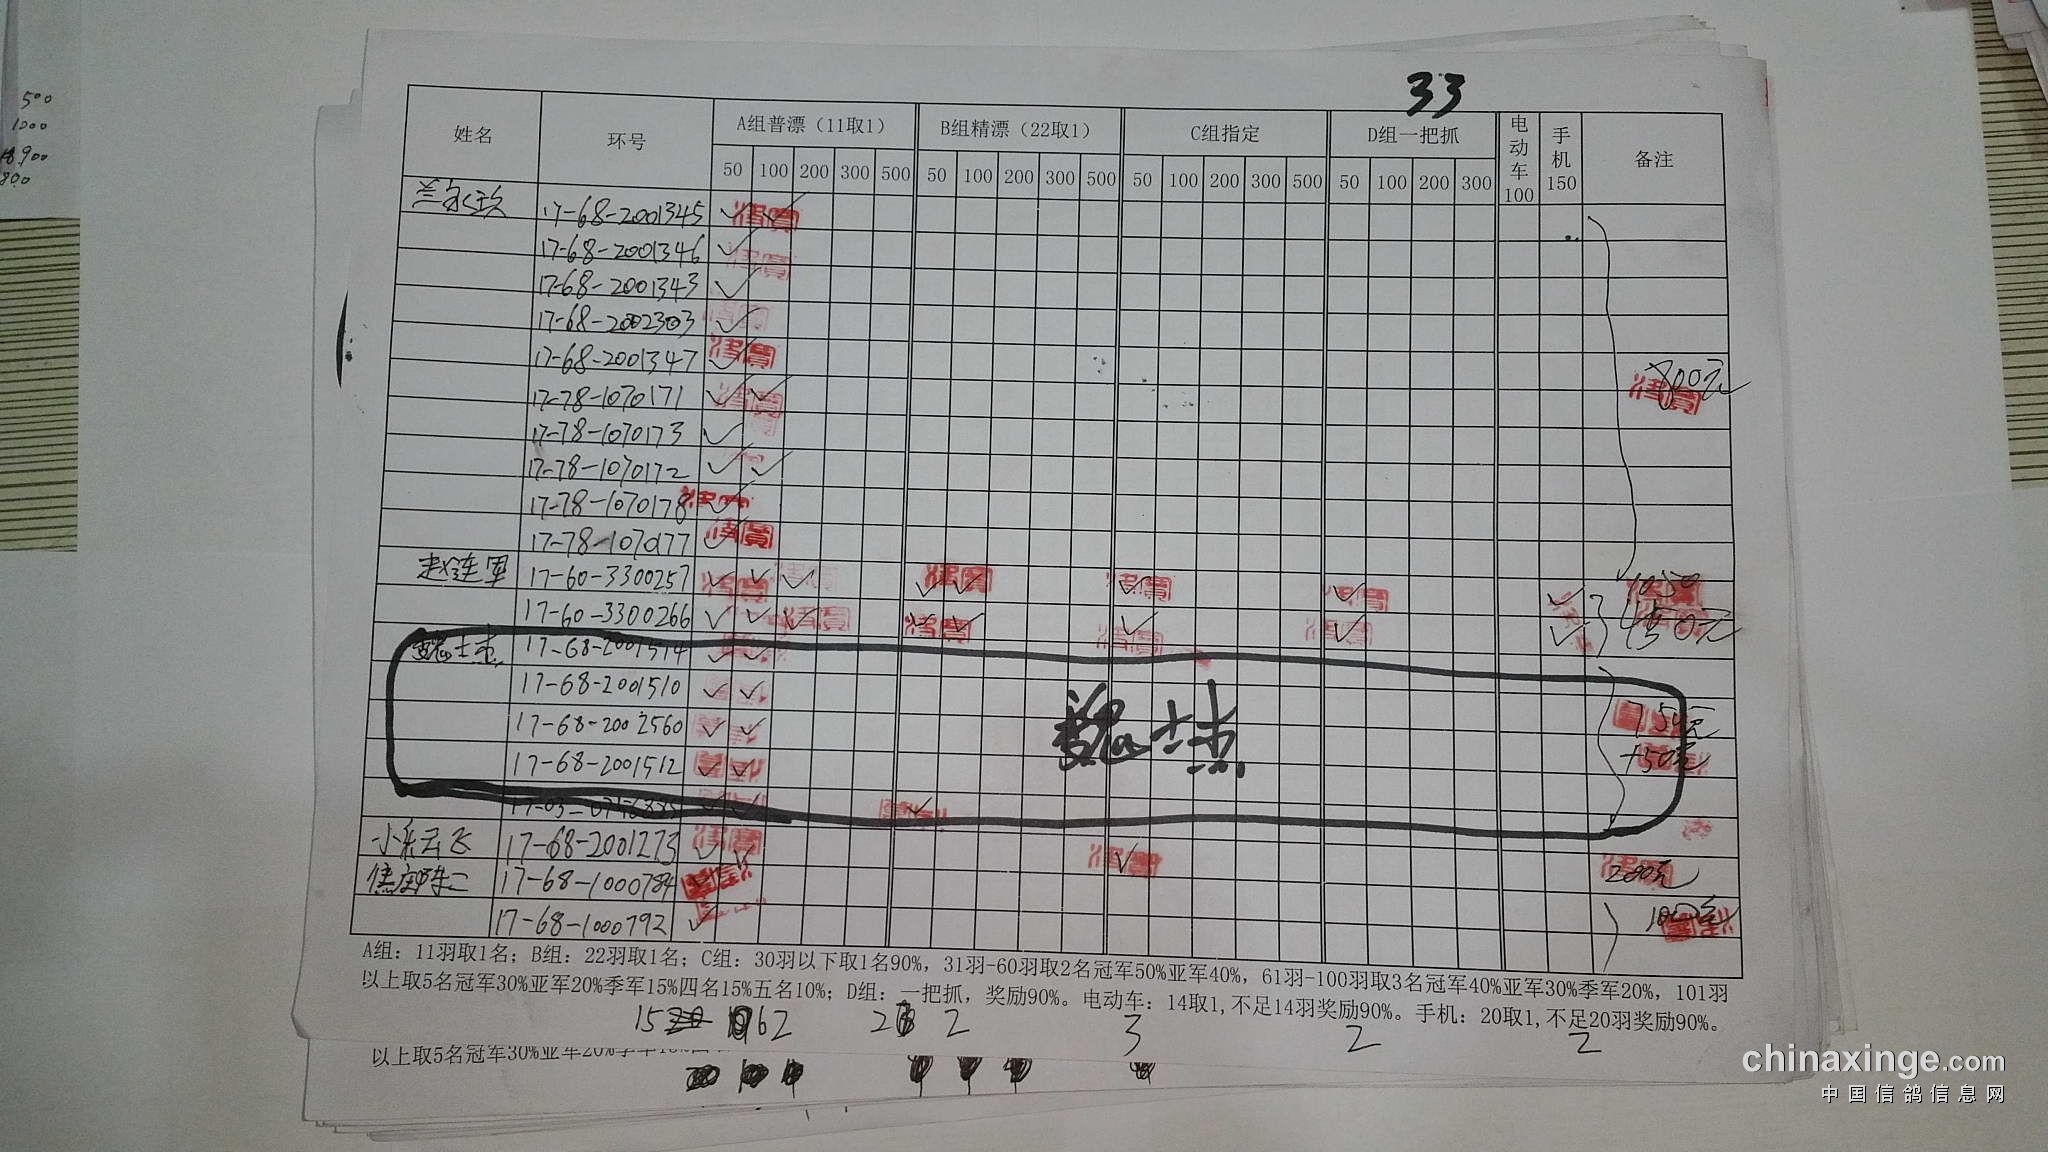 500
1000
800
33
姓名 环号 A组普漂（11取1） B组精漂（22取1） C组指定 D组一把抓 电动车100 手机150 备注
50 100 200 300 500 50 100 200 300 500 50 100 200 300 500 50 100 200 300
兰永玖 17-68-2001345 ✓ ✓
17-68-2001346 ✓
17-68-2001343 ✓
17-68-2002303 ✓
17-68-2001347 ✓ 800元
17-78-1070171 ✓ ✓
17-78-1070173 ✓
17-78-1070172 ✓ ✓
17-78-1070178 ✓
17-78-107077 ✓
赵连军 17-60-3300257 ✓ ✓ ✓ ✓ ✓ ✓ ✓ ✓ 1050
17-60-3300266 ✓ ✓ ✓ ✓ ✓ ✓ ✓ ✓ 150元
魏士杰 17-68-2001514 ✓ ✓
17-68-2001510 ✓ ✓
魏士杰
17-68-2002560 ✓ ✓
17-68-2001512 ✓ ✓ +50元
小朱云飞 17-68-2001273 ✓ ✓ ✓
焦庄陈二 17-68-1000784 ✓ 200元
17-68-1000792 ✓ 100元
A组：11羽取1名；B组：22羽取1名；C组：30羽以下取1名90%，31羽-60羽取2名冠军50%亚军40%，61羽-100羽取3名冠军40%亚军30%季军20%，101羽
以上取5名冠军30%亚军20%季军15%四名15%五名10%；D组：一把抓，奖励90%。电动车：14取1,不足14羽奖励90%。手机：20取1,不足20羽奖励90%。
15 62 2 2 3 2 2
以上取5名冠军30%亚军20%季军15%
chinaxinge.com
中国信鸽信息网